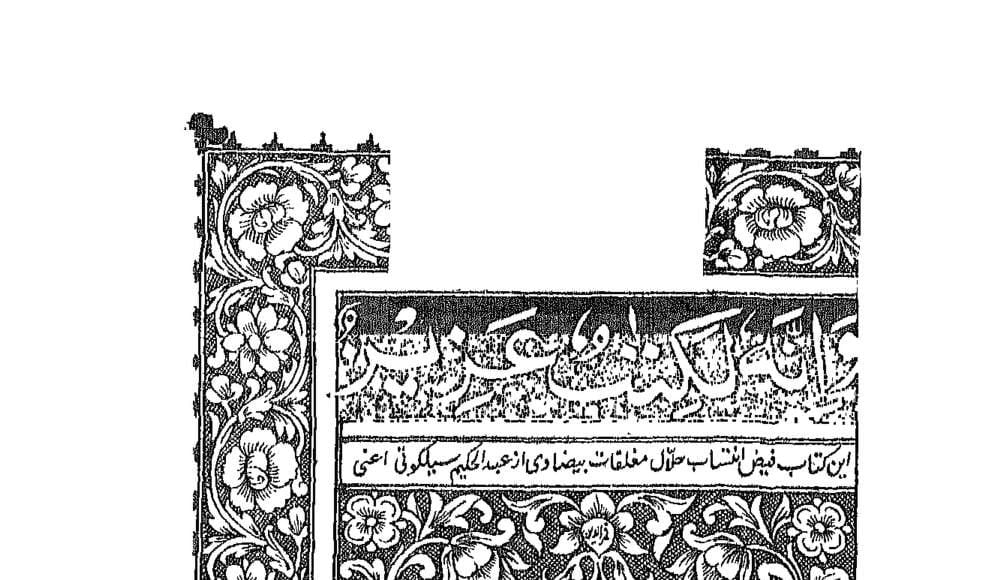 وَاِنَّهٗ لَكِتٰبٌ عَزِيْزٌ
این کتاب فیض انتساب حلّال مغلقات بیضاوی از عبدالحکیم سیلکوٹی اعنی